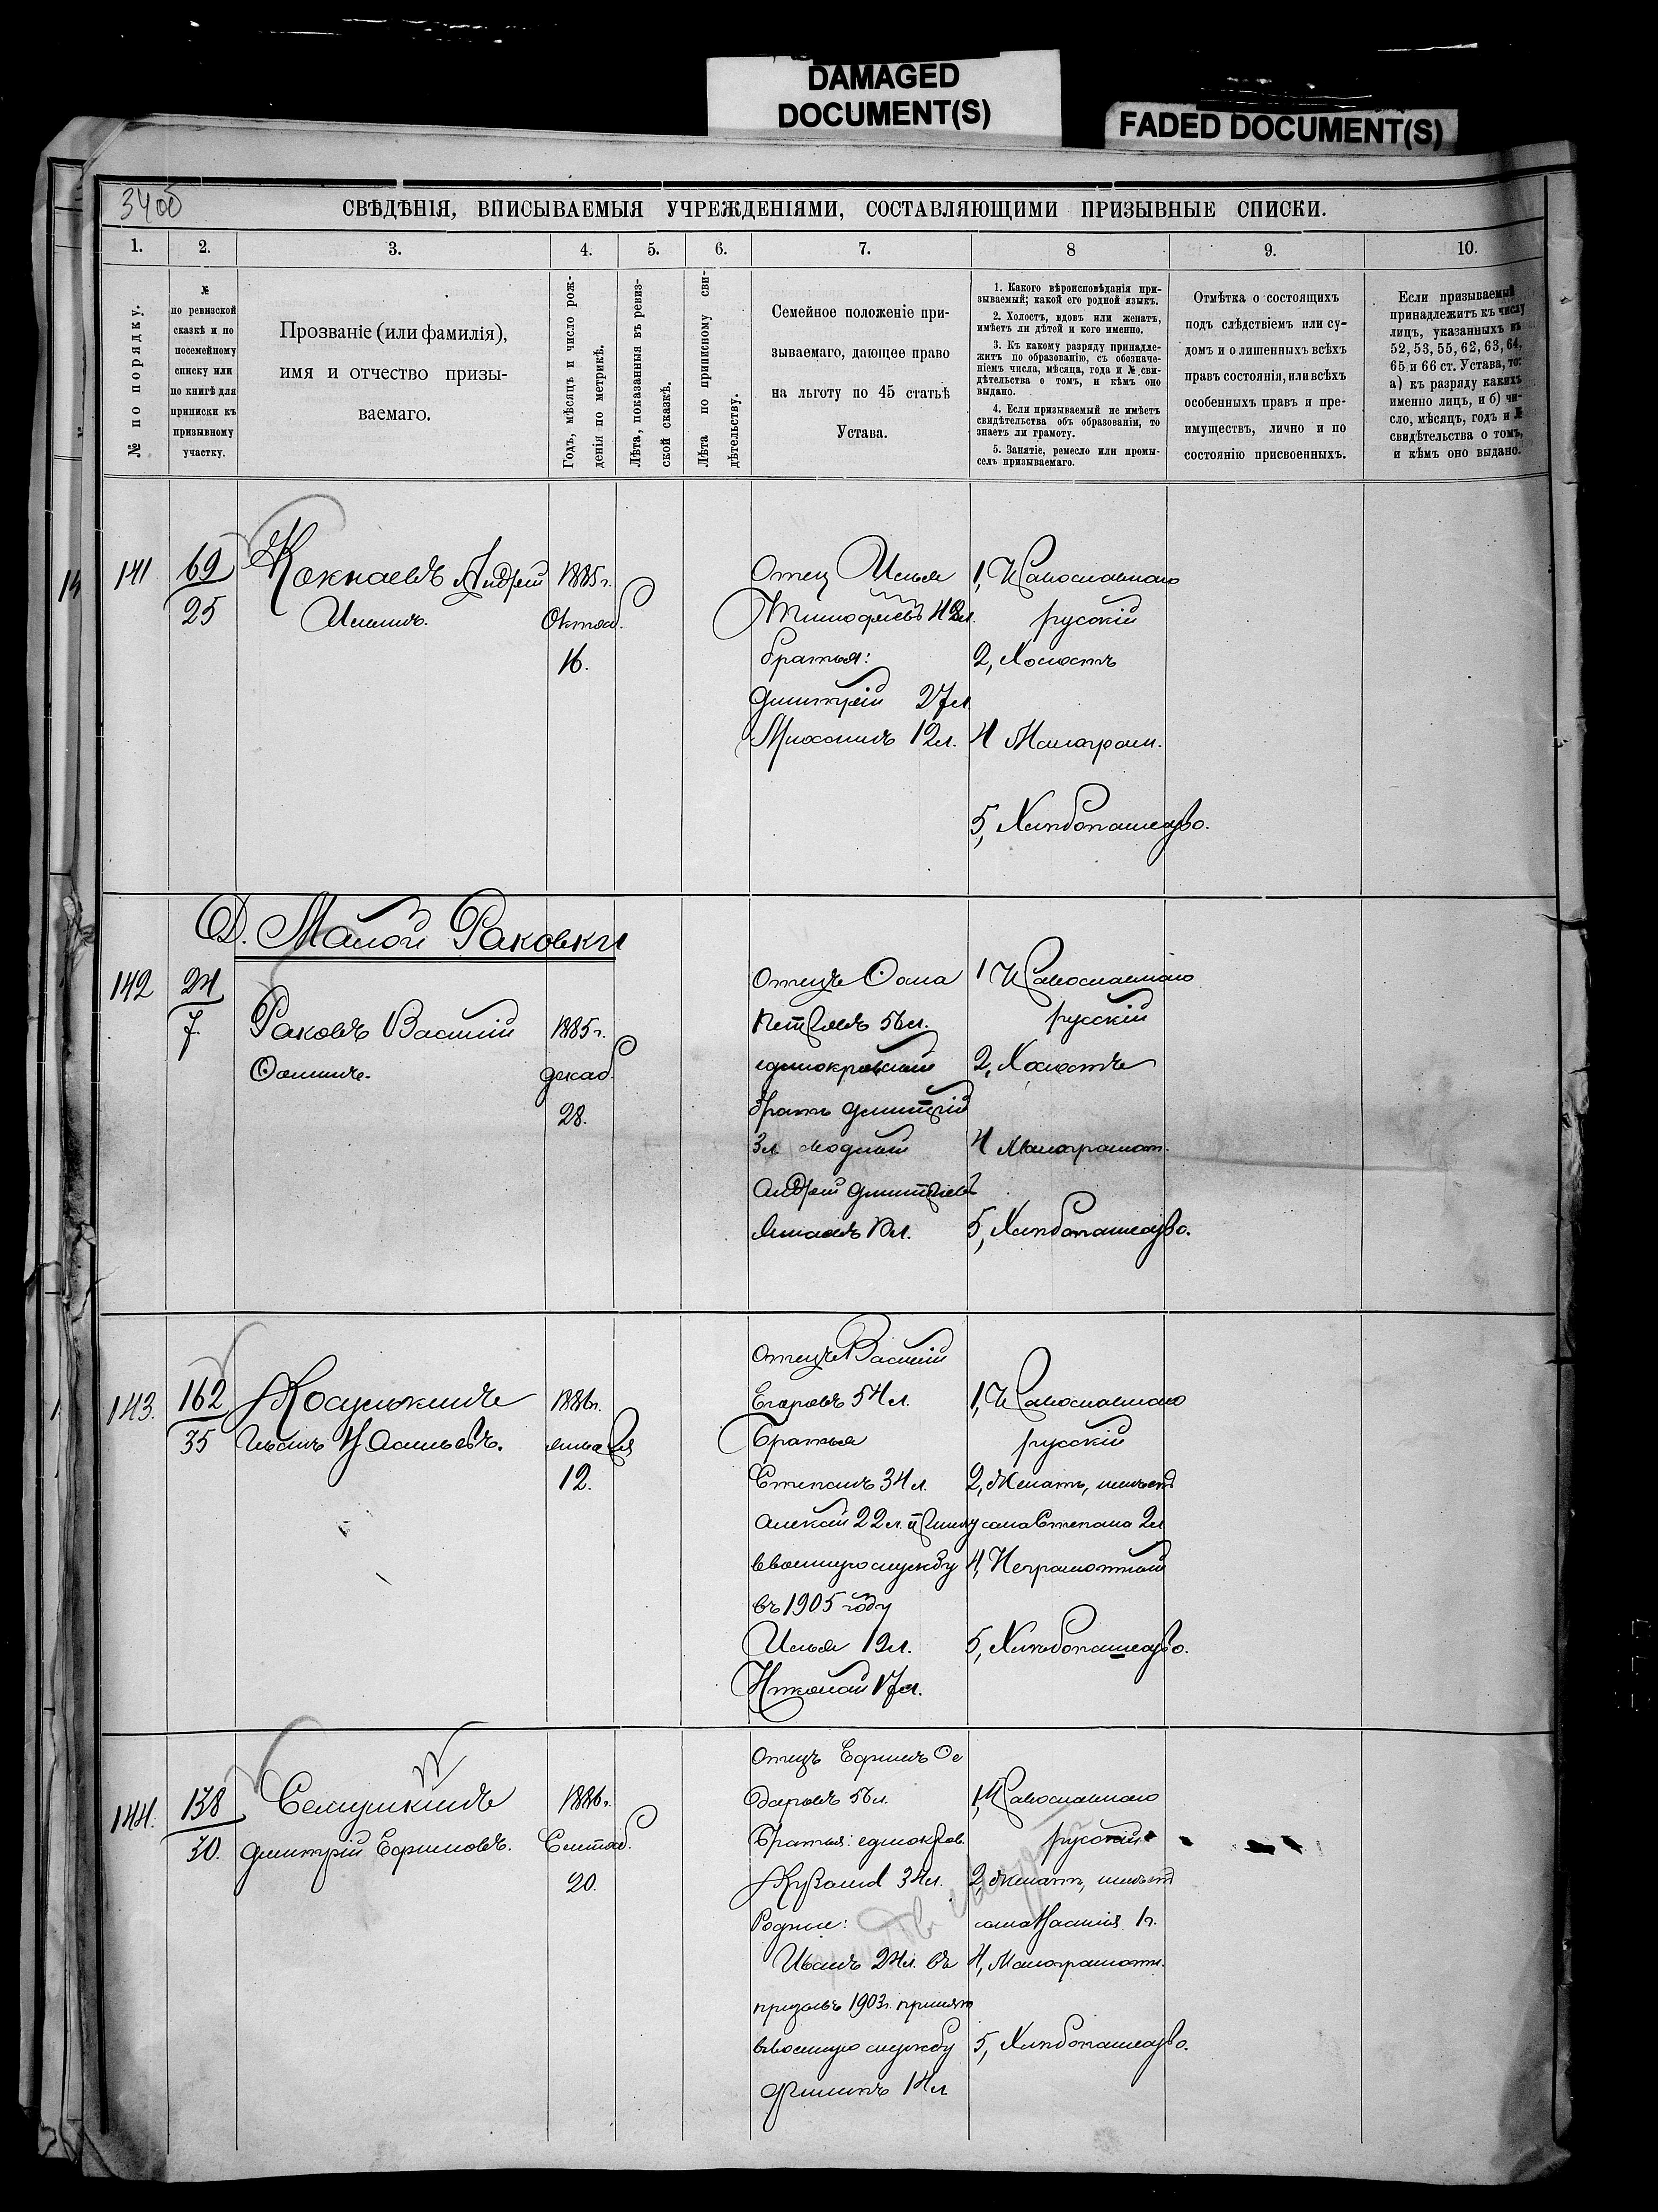 DAMAGED
DOCUMENT(S)
FADED DOCUMENT(S)
34об
СВѢДѢНІЯ, ВПИСЫВАЕМЫЯ УЧРЕЖДЕНІЯМИ, СОСТАВЛЯЮЩИМИ ПРИЗЫВНЫЕ СПИСКИ.
1. 2. 3. 4. 5. 6. 7. 8 9. 10.
№ по порядку.
№
по ревизской
сказкѣ и по
посемейному
списку или
по книгѣ для
приписки къ
призывному
участку.
Прозваніе (или фамилія),
имя и отчество призы-
ваемаго.
Годъ, мѣсяцъ и число рож-
денія по метрикѣ.
Лѣта, показанныя въ ревиз-
ской сказкѣ.
Лѣта по приписному сви-
дѣтельству.
Семейное положеніе при-
зываемаго, дающее право
на льготу по 45 статьѣ
Устава.
1. Какого вѣроисповѣданія при-
зываемый; какой его родной языкъ.
2. Холостъ, вдовъ или женатъ,
имѣетъ ли дѣтей и кого именно.
3. Къ какому разряду принадле-
житъ по образованію, съ обозначе-
ніемъ числа, мѣсяца, года и № сви-
дѣтельства о томъ, и кѣмъ оно
выдано.
4. Если призываемый не имѣетъ
свидѣтельства объ образованіи, то
знаетъ ли грамоту.
5. Занятіе, ремесло или промы-
селъ призываемаго.
Отмѣтка о состоящихъ
подъ слѣдствіемъ или су-
домъ и о лишенныхъ всѣхъ
правъ состоянія, или всѣхъ
особенныхъ правъ и пре-
имуществъ, лично и по
состоянію присвоенныхъ.
Если призываемый
принадлежитъ къ числу
лицъ, указанныхъ въ
52, 53, 55, 62, 63, 64,
65 и 66 ст. Устава, то:
а) къ разряду какихъ
именно лицъ, и б) чи-
сло, мѣсяцъ, годъ и №
свидѣтельства о томъ,
и кѣмъ оно выдано.
141
69
25
Кокнаевъ Андрей
Ильинъ.
1885г.
Октяб.
16.
Отец Илья
Тимофеевъ 42л.
братья:
Дмитрій 27л
Михаилъ 12л.
1, Православнаго
русскій
2, Холостъ
4 Малограм.
5, Хлѣбопашество.
Д. Малой Раковки
142
24
7
Раковъ Василій
Ѳоминъ.
1885г.
декаб.
28.
отецъ Ѳома
Петровъ 56л.
единокровный
братъ Дмитрій
3л. сводный
Андрей Дмитріевъ
1 Православнаго
русскій
2, Холостъ
4 Малограмот.
5, Хлѣбопашество.
143.
162
35
Косулькинъ
Иванъ Васильевъ.
1886г.
января
12.
отецъ Василій
Егоровъ 54л.
Братья
Степанъ 34л.
Алексѣй 22л. принят
въ военную службу
въ 1905 году
Илья 19л.
Николай 17л.
1, Православнаго
русскій
2, Женатъ, имѣетъ
сына Степана 2л
4, Неграмотный
5, Хлѣбопашество.
144.
138
30.
Семушкинъ
Дмитрій Ефимовъ.
1886г.
Сентяб.
20.
отецъ Ефимъ Ѳе
доровъ 56л.
Братья: единокров.
Кузьма 34л.
Родные:
Иванъ 24л. въ
призывъ 1903г. принят
въ военную службу
Филипъ 14л
1, Православнаго
русскій
2, Женатъ, имѣетъ
сына Василія 1г.
4, Малограмотн.
5, Хлѣбопашество.